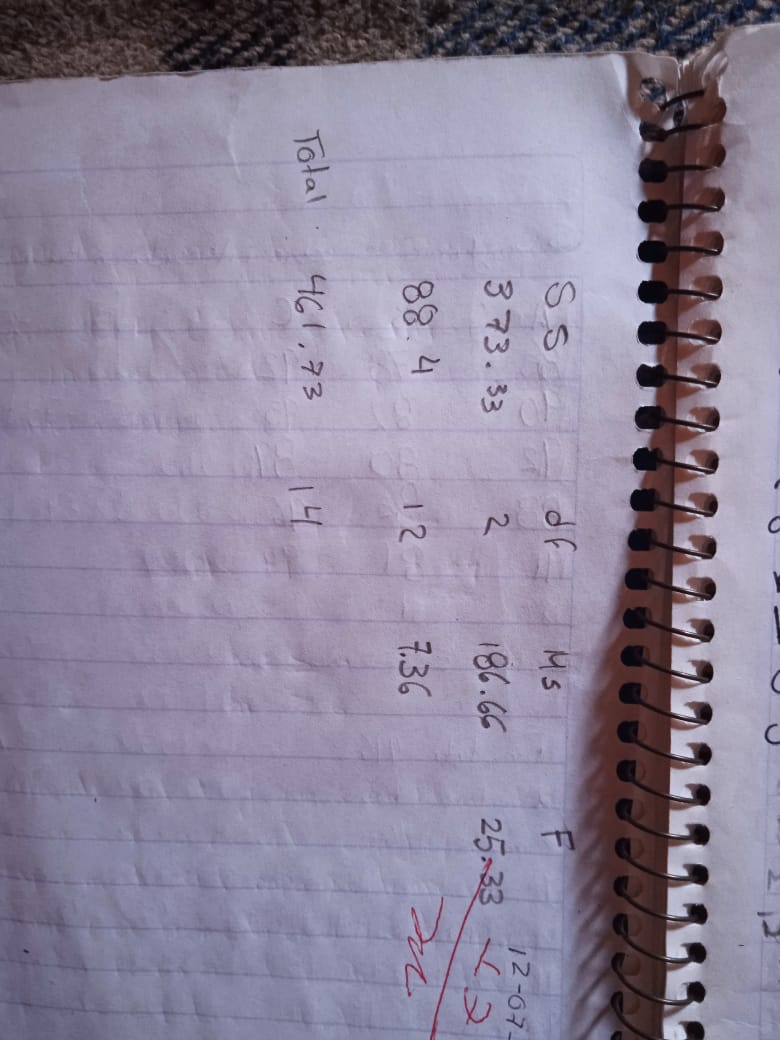 SS df Ms F
373.33 2 186.66 25.33
88.4 12 7.36
Total 461.73 14